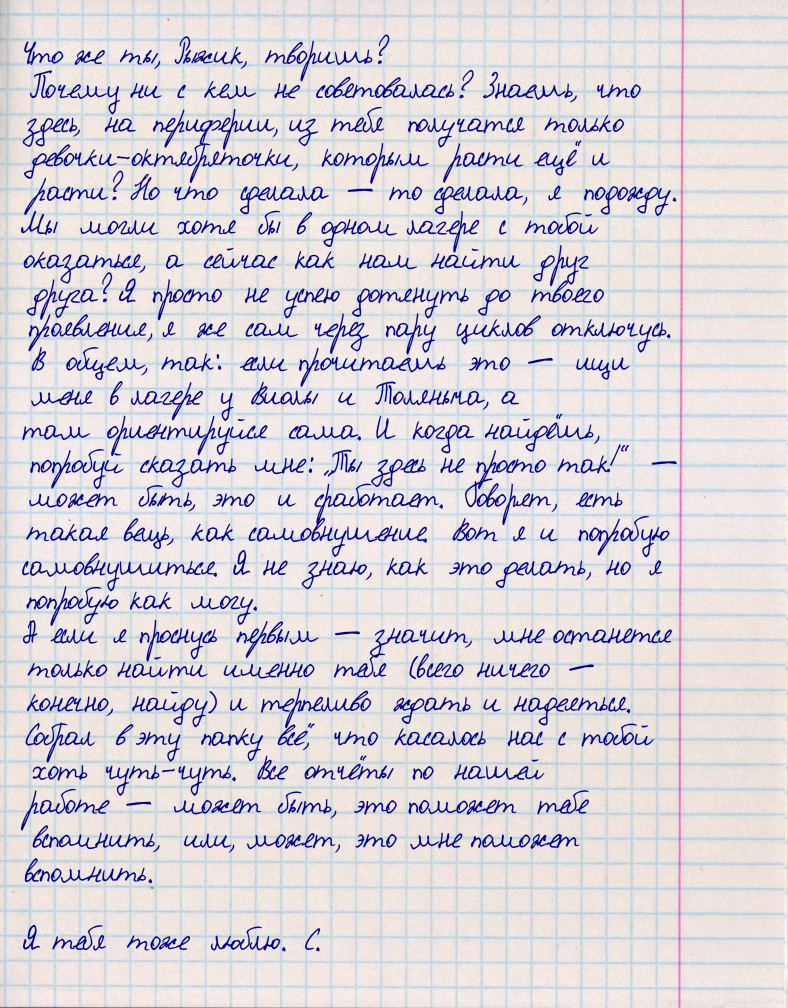 Что же ты, Рыжик, творишь?
Почему ни с кем не советовалась? Знаешь, что
здесь, на периферии, из тебя получатся только
девочки-октябряточки, которым расти ещё и
расти? Но что сделала — то сделала, я подожду.
Мы могли хотя бы в одном лагере с тобой
оказаться, а сейчас как нам найти друг
друга? Я просто не успею дотянуть до твоего
проявления, я же сам через пару циклов отключусь.
В общем, так: если прочитаешь это — ищи
меня в лагере у Виолы и Толяныча, а
там ориентируйся сама. И когда найдёшь,
попробуй сказать мне: „Ты здесь не просто так!“ —
может быть, это и сработает. Говорят, есть
такая вещь, как самовнушение. Вот я и попробую
самовнушиться. Я не знаю, как это делать, но я
попробую как могу.
А если я проснусь первым — значит, мне останется
только найти именно тебя (всего ничего —
конечно, найду) и терпеливо ждать и надеяться.
Собрал в эту папку всё, что касалось нас с тобой
хоть чуть-чуть. Все отчёты по нашей
работе — может быть, это поможет тебе
вспомнить, или, может, это мне поможет
вспомнить.
Я тебя тоже люблю. С.